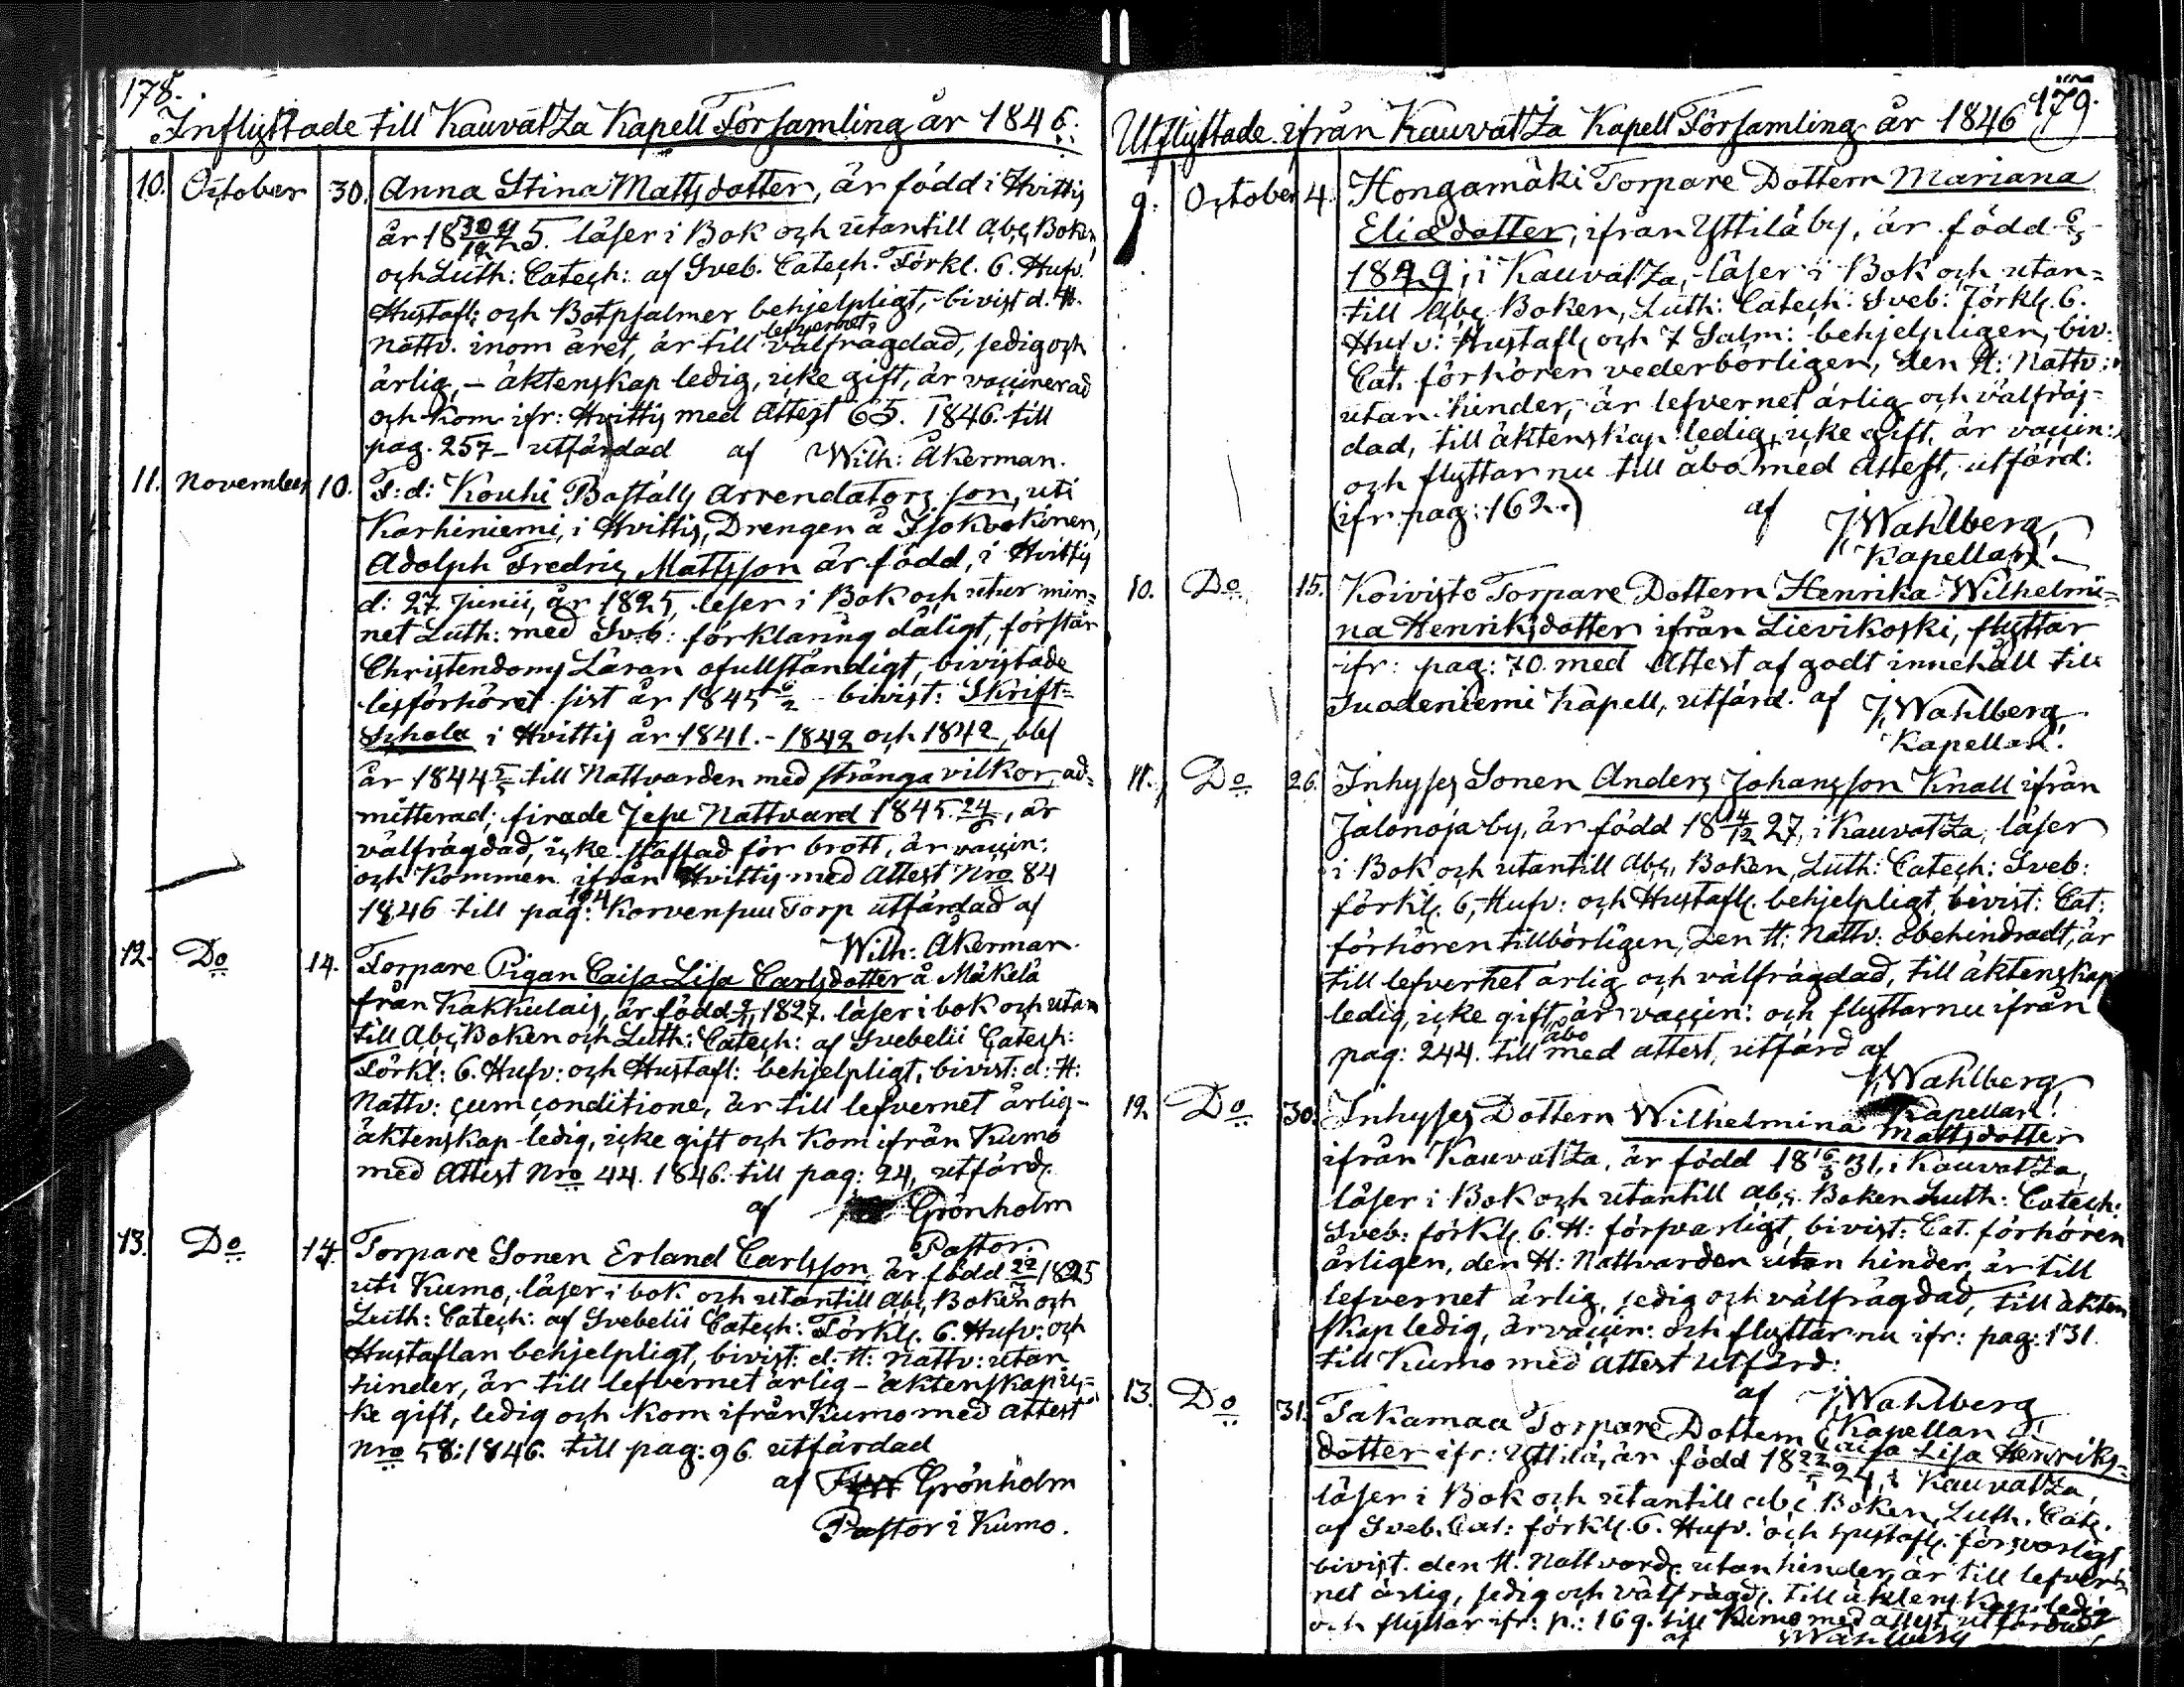 178.
Inflyttade till Kauvatza Kapell Församling år 1846.
10. October 30. Anna Stina Mattsdotter, är född i Hvittis
år 18 25. läser i Bok och utantill Abc Boken,
och Luth: Catech: af Sveb. Catech. Förkl. 6. Hufv.
Hustafl: och Botpsalmer behjelpligt, bivist d. H.
Nattv. inom året, är till lefvernet välfrägdad, sedig och
ärlig, – äktenskap ledig, icke gift, är vaccinerad
och kom ifr: Hvittis med Attest 65. 1846. till
pag. 257 – utfärdad af Wilh: Åkerman.
11. November 10. S: d: Kouhi Boställs Arrendators son, uti
Karhiniemi, i Hvittis, Drengen å Isokookinen,
Adolph Fredric Mattsson är född, i Hvittis
d: 27 Junii, år 1825, leser i Bok och utur min=
net Luth: med Sveb: förklaring dåligt, förstår
Christendoms Läran ofullständigt, bivistade
lesförhöret sist år 1845 bivist: Skrift=
Schola i Hvittis år 1841. – 1842 och 1842, blef
år 1844 till Nattvarden med stränga vilkor, ad=
mitterad; firade Jesu Nattvard 1845. 24, är
välfrägdad, icke straffad för brott, är vaccin:
och kommen ifrån Hvittis med Attest Nro 84
1846 till pag: 194 Korvenpuu Torp utfärdad af
Wilh: Åkerman.
12. Do 14. Torpare Pigan Caisa Lisa Carlsdotter å Mäkelä
från Kakkulais, är född 1827. läser i bok och utan
till Abc Boken och Luth: Catech: af Svebelii Catech:
Förkl: 6. Hufv: och Hustafl: behjelpligt, bivist: d: H:
Nattv: cum conditione, är till lefvernet ärlig –
äktenskap ledig, icke gift och kom ifrån Kumo
med Attest Nro 44. 1846. till pag: 24, utfärd.
af Grönholm
Pastor.
13. Do 14. Torpare Sonen Erland Carlsson är född 22 1825
uti Kumo, läser i bok och utantill Abc, Boken och
Luth: Catech: af Svebelii Catech: Förkl. 6. Hufv: och
Hustaflan behjelpligt, bivist: d: H: Nattv: utan
hinder, är till lefvernet ärlig – äktenskap ic=
ke gift, ledig och kom ifrån Kumo med Attest
Nro 58: 1846. till pag: 96. utfärdad
af Grönholm
Pastor i Kumo.
179.
Utflyttade ifrån Kauvatza Kapell Församling år 1846
9. October 4. Hongamäki Torpare Dottern Mariana
Eliædotter, ifrån Yttilä by, är född
1829, i Kauvatza, läser i Bok och utan=
till Abc Boken, Luth: Catech: Sveb: Förkl. 6.
Hufv: Hustafl. och 7 Salm: behjelpligen, biv:
Cat. förhören vederbörligen, den H: Nattv:
utan hinder, är lefvernet ärlig och välfräg=
dad, till äktenskap ledig, icke gift, är vaccin:
och flyttar nu till Åbo med Attest, utfärd:
(ifr: pag: 162.) af J, Wahlberg
Kapellan.
10. Do 15. Koivisto Torpare Dottern Henrika Wilhelmi=
na Henriksdotter ifrån Lievikoski, flyttar
ifr: pag: 70. med Attest af godt innehåll till
Suodeniemi Kapell, utfärd. af J, Wahlberg
Kapellan.
11. Do 26. Inhyses Sonen Anders Johansson Knall ifrån
Jalonoja by, är född 18 14/12 27, i Kauvatza, läser
i Bok och utantill Abc, Boken, Luth: Catech: Sveb:
förkl. 6, Hufv: och Hustafl. behjelpligt, bivist: Cat:
förhören tillbörligen, den H: Nattv: obehindradt, är
till lefvernet ärlig och välfrägdad, till äktenskap
ledig, icke gift, är vaccin: och flyttar nu ifrån
pag: 244. till Åbo med attest, utfärd af
J, Wahlberg
Kapellan.
12. Do 30. Inhyses Dottern Wilhelmina Mattsdotter
ifrån Kauvatza, är född 18 16/3 31, i Kauvatza,
läser i Bok och utantill Abc. Boken Luth: Catech:
Sveb: förkl. 6. H: försvarligt, bivist: Cat. förhören
årligen, den H: Nattvarden utan hinder, är till
lefvernet ärlig, sedig och välfrägdad, till äkten
skap ledig, är vaccin: och flyttar nu ifr: pag: 131.
till Kumo med Attest utfärd:
af J, Wahlberg
Kapellan
13. Do 31. Takamaa Torpare Dottern Caisa Lisa Henriks=
dotter ifr: Yttilä, är född 18 24, i Kauvatza,
läser i Bok och utantill abc. Boken, Luth. Catc.
af Sveb. Cat: förkl. 6. Hufv. och hustafl. försvarligt
bivist. den H. Nattvard. utan hinder, är till lefver=
net ärlig, sedig och välfrägd. till äktenskap ledig
och flyttar ifr: p.: 169. till Kumo med attest, utfärdadt
af Wahlberg